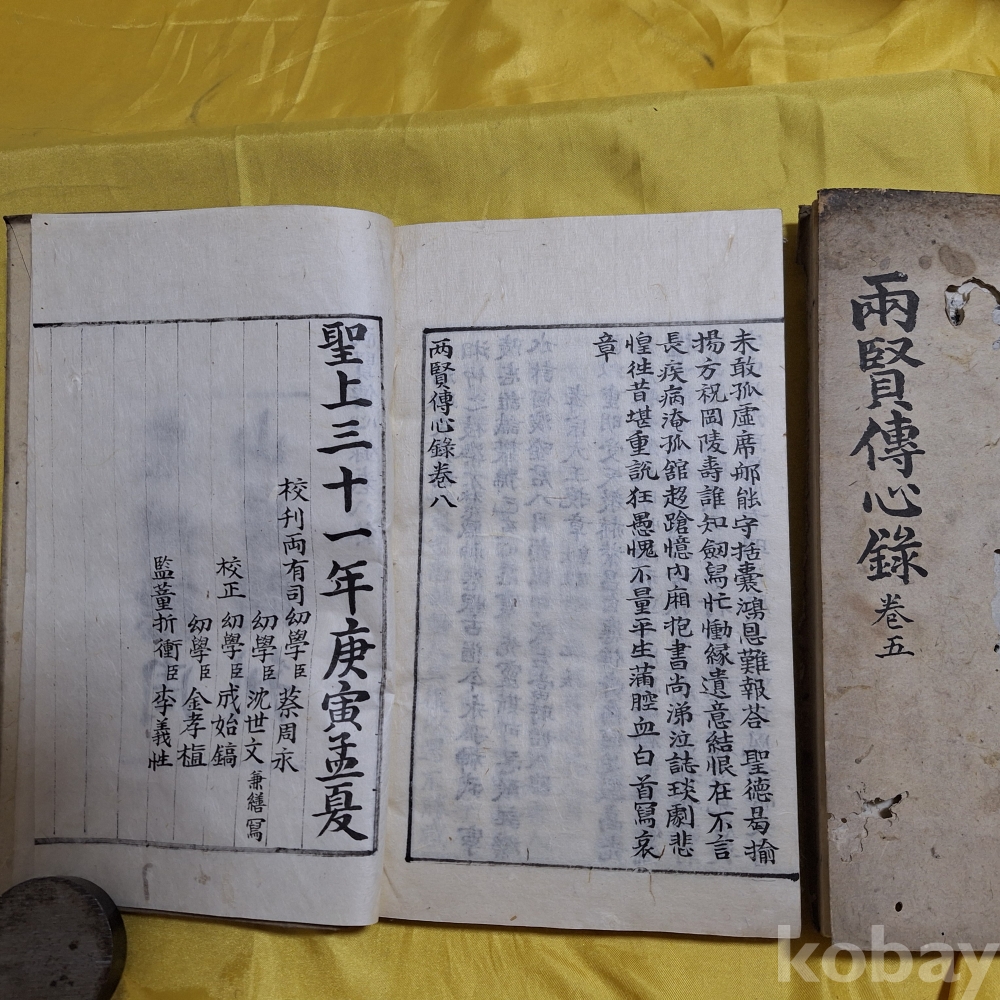 兩賢傳心錄 卷五
未敢孤虛席郍能守括囊鴻恩難報荅 聖德曷揄
揚方祝岡陵壽誰知劒舃忙慟緣遺意結恨在不言
長疾病淹孤舘超蹌憶內廂抱書尚涕泣誌琰劇悲
惶徃昔堪重說狂愚愧不量平生蒲腔血白首寫哀
章
两賢傳心錄卷八
聖上三十一年庚寅孟夏
校刊两有司幼學臣 蔡周永
幼學臣 沈世文 兼繕寫
校正 幼學臣 成始鎬
幼學臣 金孝植
監董折衝臣 李義性
kobay